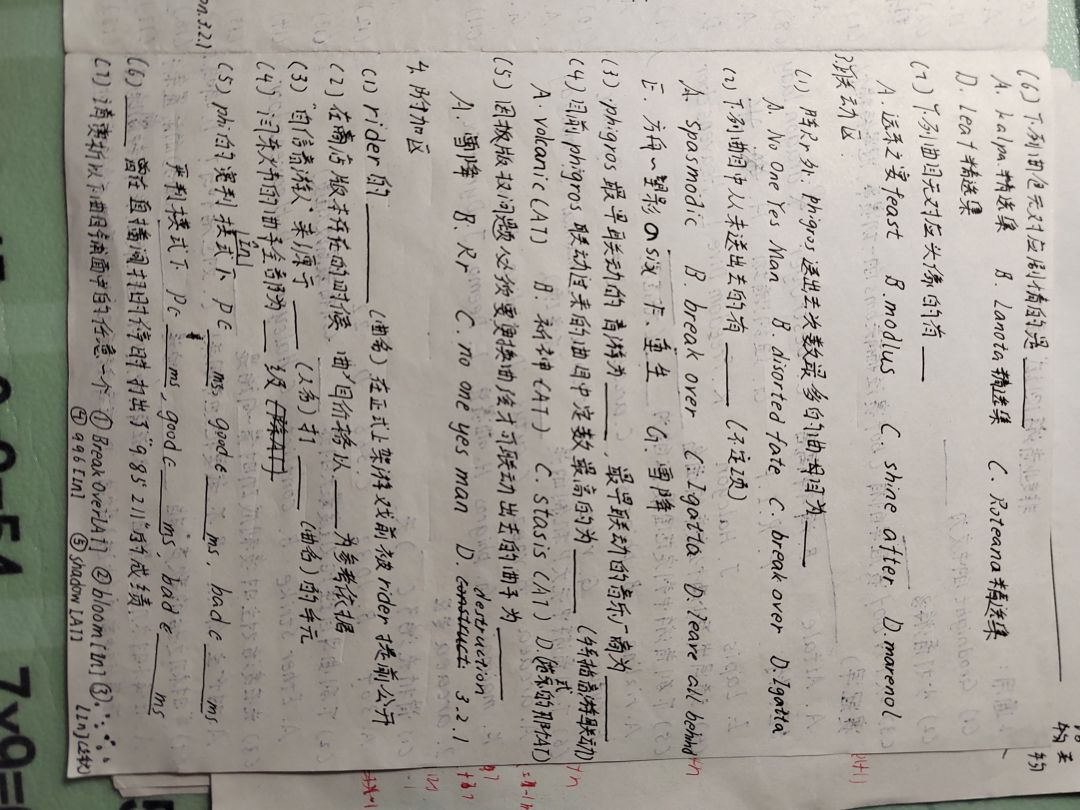 (6) 下列曲包无对应剧情的是
A. kalpa精选集 B. Lanota精选集 C. Rotaeno精选集
D. Leaf精选集
(7) 下列曲目无对应头像的有
A. 云来之宴feast B. modlus C. shine after D. marenol
3. 联动区
(1) 除Rr外, phigros送出去次数最多的曲目为
A. No One Yes Man B. disorted fate C. break over D. Igatta
(2) 下列曲目中从未送出去的有 (不定项)
A. spasmodic B. break over C. Igallta D. leave all behind
E. 方舟一望影 asix F. 重生 G. 雪降
(3) phigros最早联动的音游为 , 最早联动的音乐厂商为
(4) 目前phigros联动过来的曲目中定数最高的为 (特指音游联动)
A. volcanic (AT) B. 祈祷 (AT) C. stasis (AT) D. 的 (AT)
(5) 因版权问题必须要更换曲绘才可联动出去的曲子为
A. 雪降 B. Rr C. no one yes man D. destruction 3.2.1
4. 附加区
(1) rider的 (曲名) 在正式上架游戏前被rider提前公开
(2) 在商店版本存在的时候, 曲目价格以 为参考依据
(3) "自信点游人"来源于 (人名) 打 (曲名) 的手元
(4) 司来本的曲子全部为 级
(5) phi的宽判模式下 Pc ms good c ms, bad c ms
严判模式下 Pc ms, good c ms, bad c ms
(6) 曾在直播间打时停时打出了"985211"的成绩
(7) 请赏析以下曲目谱面中的任意一个 ① BreakOver[AT] ② bloom[In] ③
④ 996[In] ⑤ shadow[AT]